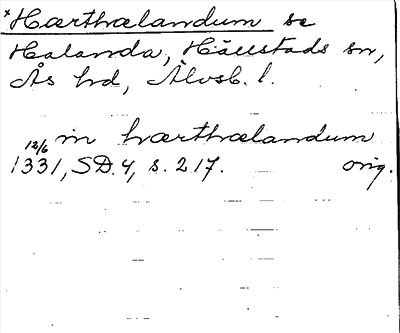 *Hærthælandum se
Halanda, Hällstads sn,
Ås hd, Älvsb. l.
in hærthælandum
12/6 1331, SD. 4, s. 217. orig.